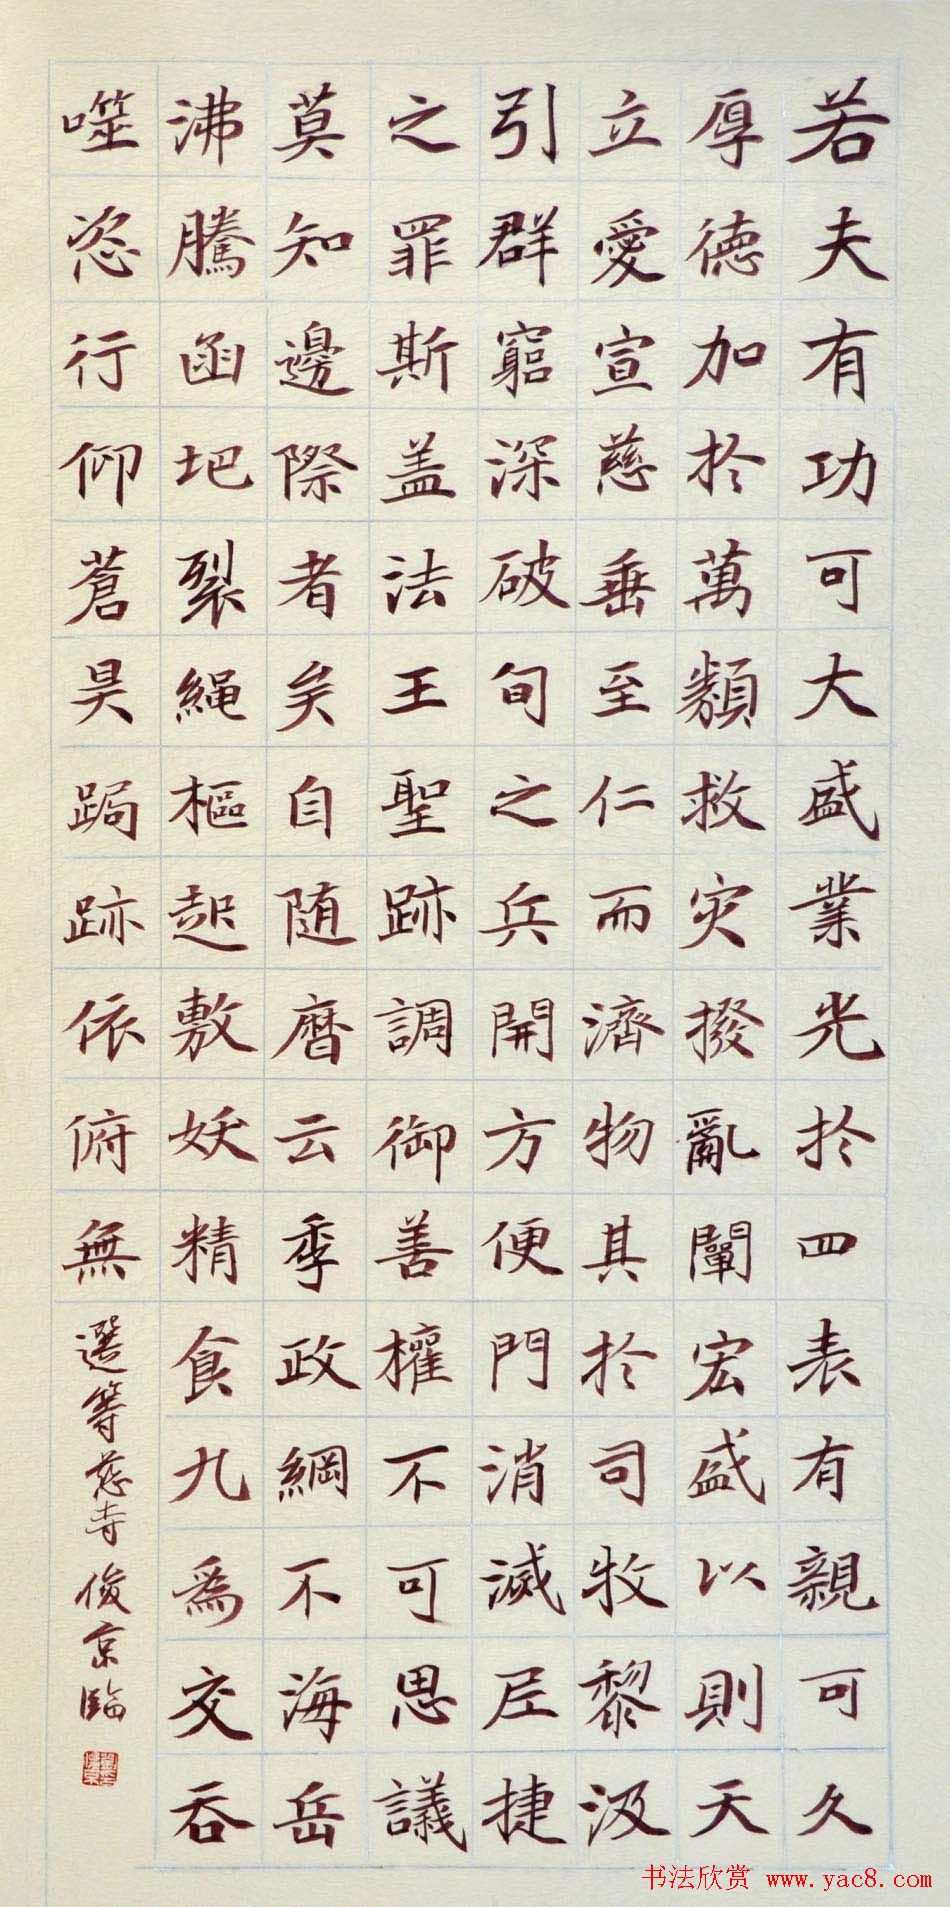 若夫有功可大盛業光於四表有親可久
厚德加於萬類救灾撥亂闡宏盛以則天
立愛宣慈垂至仁而濟物其於司牧黎汲
引群窮深破旬之兵開方便門消滅居捷
之罪斯盖法王聖跡調御善權不可思議
莫知邊際者矣自随曆云季政綱不海岳
沸騰函圯裂繩樞起敷妖精食九為交吞
噬恣行仰蒼昊跼跡依俯無
選等慈寺 俊京臨
书法欣赏 www.yac8.com